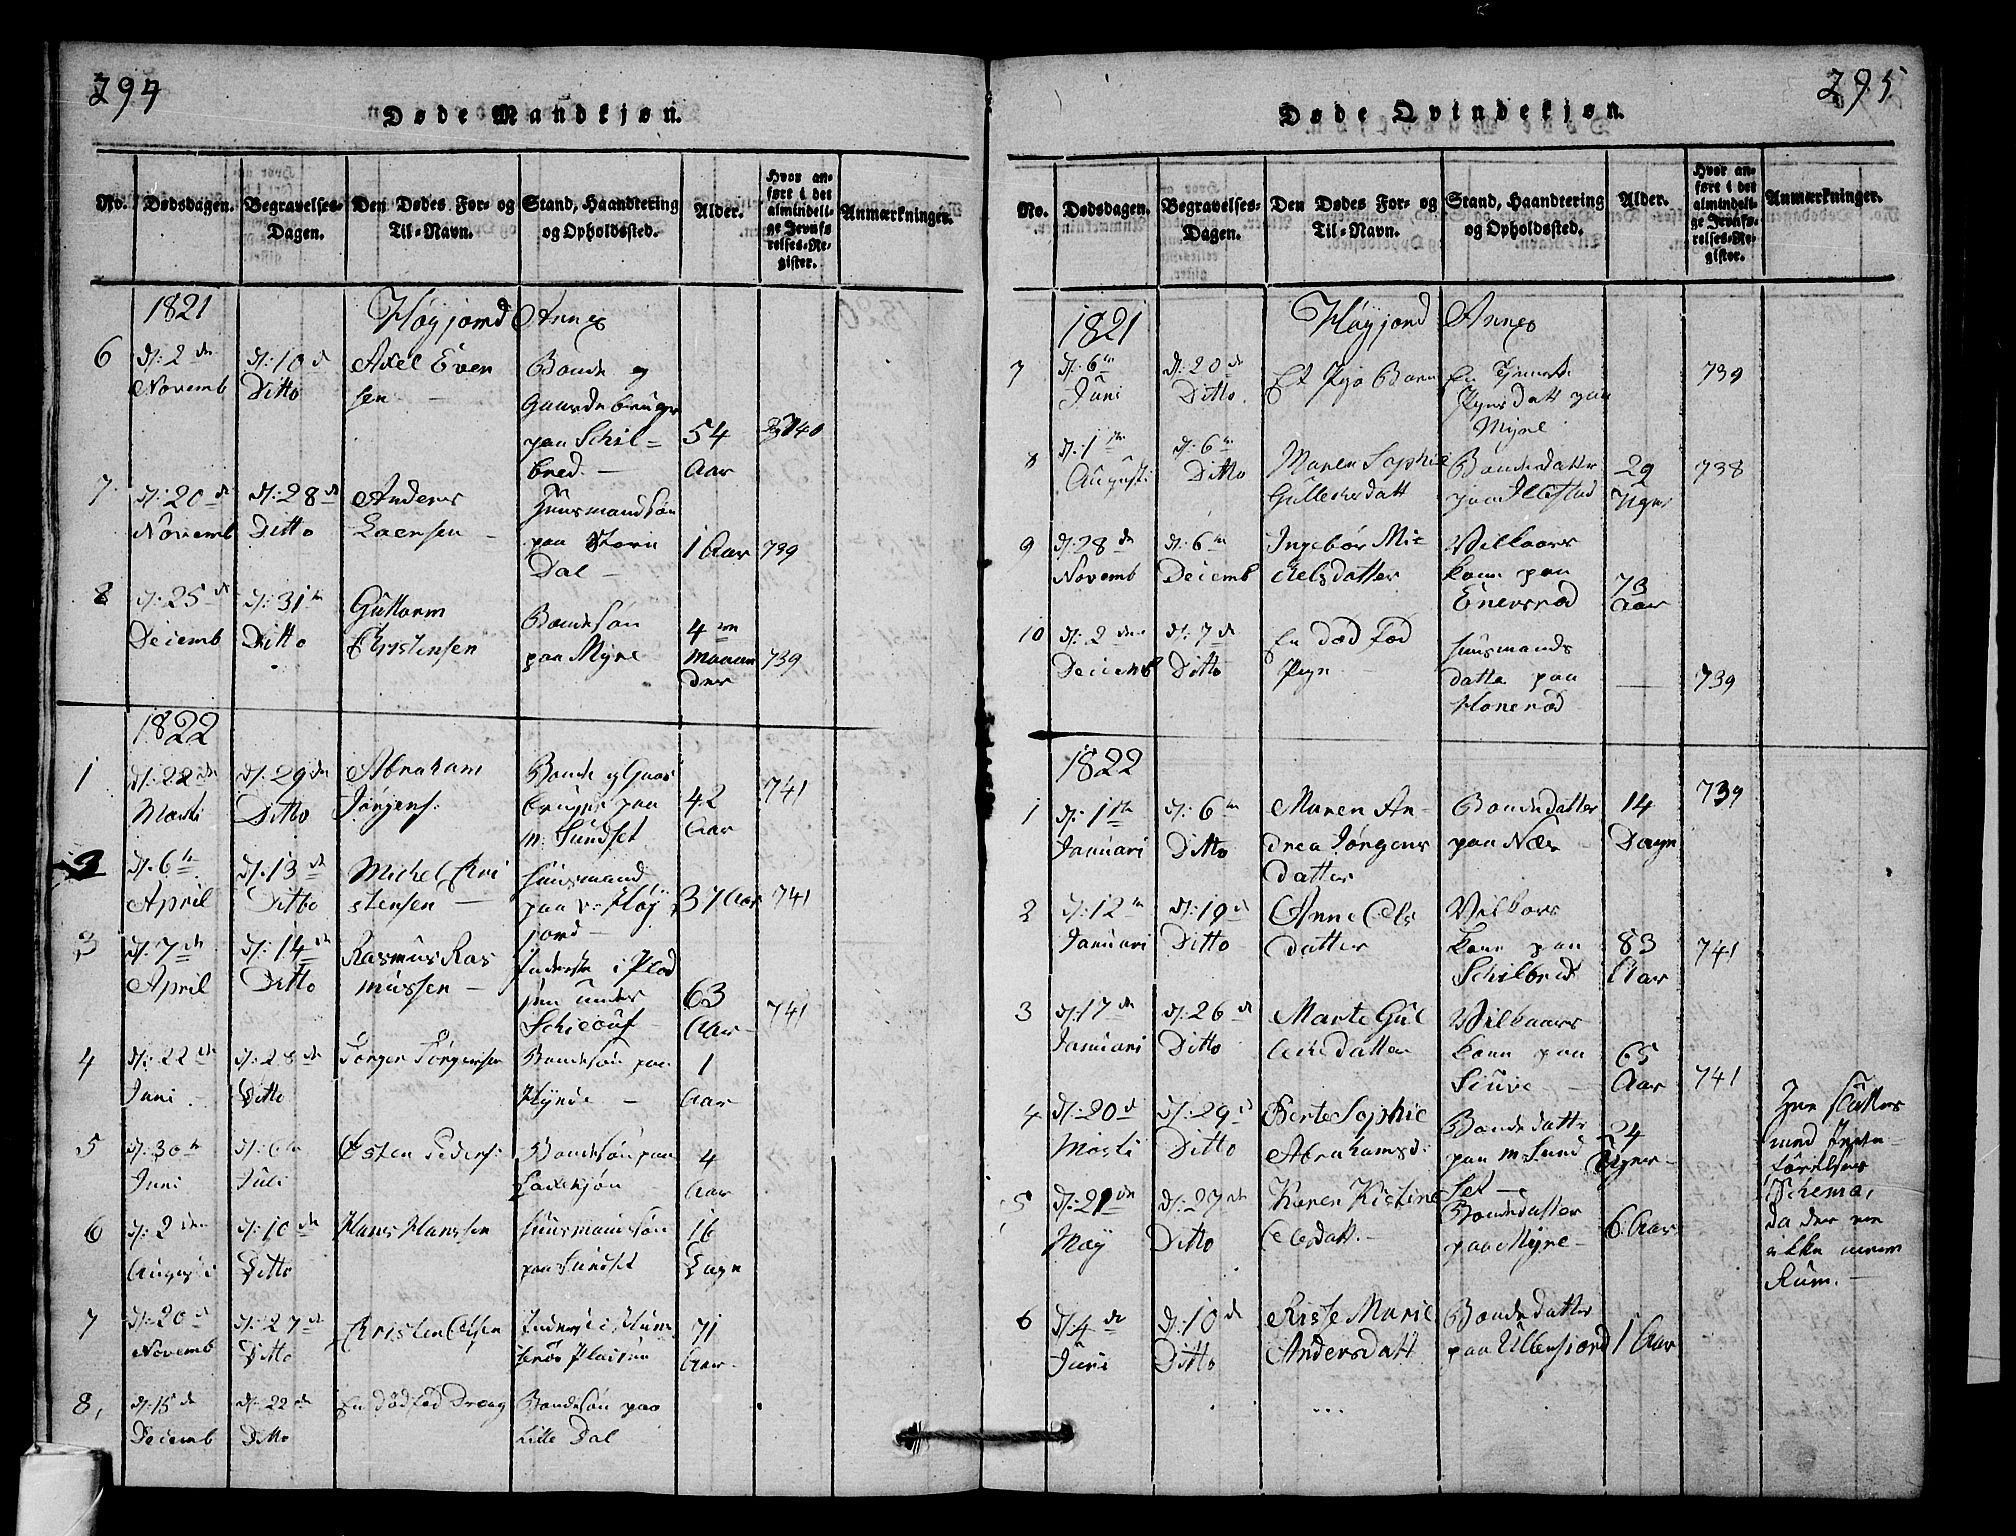 294
Døde Mandkjøn.
No.
Dødsdagen.
Begravelses-
Dagen.
Den Dødes For- og
Til-Navn.
Stand, Haandtering
og Opholdssted.
Alder.
Hvor an-
ført i det
almindeli-
ge Jevnfø-
relses-Re-
gister.
Anmærkninger.
1821
Høyjord Annex
6
d: 2 den
Novemb
d: 10 d
Ditto
Axel Even
sen
Bonde og
Gaardebruger
paa Schil=
bred. —
54
Aar
740
7
d: 20 d
Novemb
d: 28 d
Ditto
Anders
Laersen
Huusmandsøn
paa Store
Dal —
1 Aar
739
8
d: 25 d
Decemb
d: 31 te
Ditto
Guttorm
Christensen
Bondesøn
paa Myre
4
Maane
der
739
1822
1
d: 22 den
Marti
d: 29 den
Ditto
Abraham
Jørgens:
Bonde og Gaar
bruger paa
m: Sundset
42
Aar
741
2
d: 6 te
April
d: 13 d
Ditto
Michel Chri
stensen —
Huusmand
paa v: Høy
jord —
37 Aar
741
3
d: 7 de
April
d: 14 de
Ditto
Rasmus Ras
mussen —
Inderste i Plad
sen under
63
Aar
741
4
d: 22 de
Juni
d: 28 de
Ditto
Jørgen Jørgensen
Bondesøn paa
1
Aar
5
d: 30 te
Juni
d: 6 te
Juli
Østen Peders:
Bondesøn paa
4
Aar
6
d: 2 den
Augusti
d: 10 de
Ditto
Hans Hanssen
Huusmandsøn
paa Sundset
16
Dage
7
d: 20 d
Novemb
d: 27 de
Ditto
Kristen Olsen
Inderste i
71
Aar
8
d: 15 de
Decemb
d: 22 de
Ditto
En dødfød Dreng
Bondesøn paa
Lille Dal
295
Døde Qvindekjøn.
No.
Dødsdagen.
Begravelses-
Dagen.
Den Dødes For- og
Til-Navn.
Stand, Haandtering
og Opholdssted.
Alder.
Hvor an-
ført i det
almindeli-
ge Jevnfø-
relses-Re-
gister.
Anmærkninger.
1821
Høyjord Annex
7
d: 6 te
Juni
d: 20 de
Ditto
Et Pige Barn
En Tjeneste
Pigesdatt paa
Myre
739
8
d: 1 ste
Augusti
d: 6 te
Ditto
Maren Sophie
Gullechsdatt
Bondedatter
paa Illestad
29
Uger
738
9
d: 28 de
Novemb
d: 6 te
Decemb
Ingebor Mic
kelsdatter
Vilkaars
kone paa
Enersrød
73
Aar
10
d: 2 den
Decemb
d: 7 de
Ditto
En død fød
Pige
Huusmands
datte paa
Honerød
739
1822
1
d: 1 ste
Januari
d: 6 te
Ditto
Maren An-
drea Jørgens
datter
Bondedatter
paa Næs
14
Dage
739
2
d: 12 te
Januari
d: 19 d
Ditto
Anne Ols
datter
Vilkaars
kone paa
Schilbred
83
Aar
741
3
d: 17 de
Januari
d: 26 de
Ditto
Marte Gul
lichsdatter
Vilkaars
kone paa
65
Aar
741
4
d: 20 d
Marti
d: 29 d
Ditto
Berte Sophie
Abrahamsd:
Bondedatter
paa m: Sund
set —
24
Uger
Her sluttes
med Jevn-
førelses
Schema,
da der er
ikke mere
Rum. —
5
d: 21 de
May
d: 27 de
Ditto
Karen Kistine
Olesdatt. —
Bondedatter
paa Myre —
6 Aar
6
d: 4 de
Juni
d: 10 de
Ditto
Risse Marie
Andersdatt
Bondedatter
paa Ullensiord
1 Aar